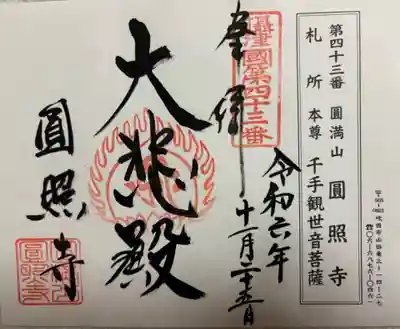 第四十三番 圓満山 圓照寺
札所 本尊 千手観世音菩薩
摂津國第四十三番
奉拝
令和六年
十一月二十五日
大悲殿
圓照寺